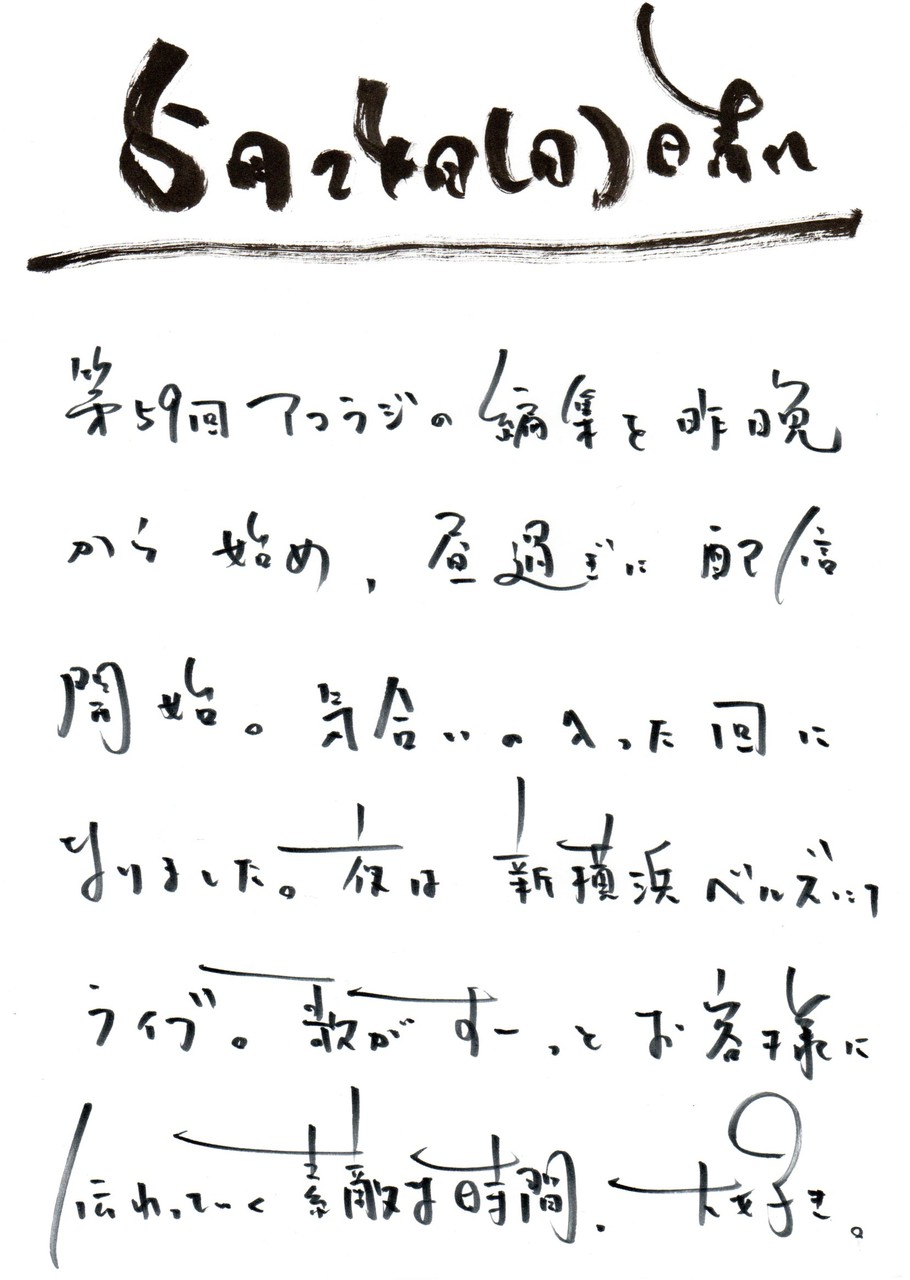 5月24日(日)日晴れ
第59回アコラジの編集を昨晩
から始め、昼過ぎに配信
開始。気合いの入った回に
なりました。夜は新横浜ベルズにて
ライブ。歌がすーっとお客様に
伝わっていく素敵な時間、大好き。